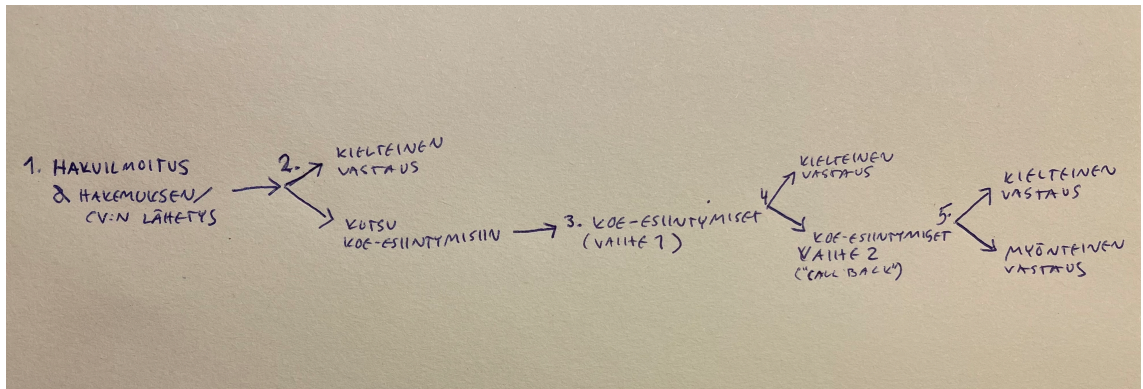 1. HAKUILMOITUS
& HAKEMUKSEN/
CV:N LÄHETYS
2.
KIELTEINEN
VASTAUS
KUTSU
KOE-ESIINTYMISIIN
3. KOE-ESIINTYMISET
(VAIHE 1)
4
KIELTEINEN
VASTAUS
KOE-ESIINTYMISET
VAIHE 2
("CALL BACK")
5.
KIELTEINEN
VASTAUS
MYÖNTEINEN
VASTAUS